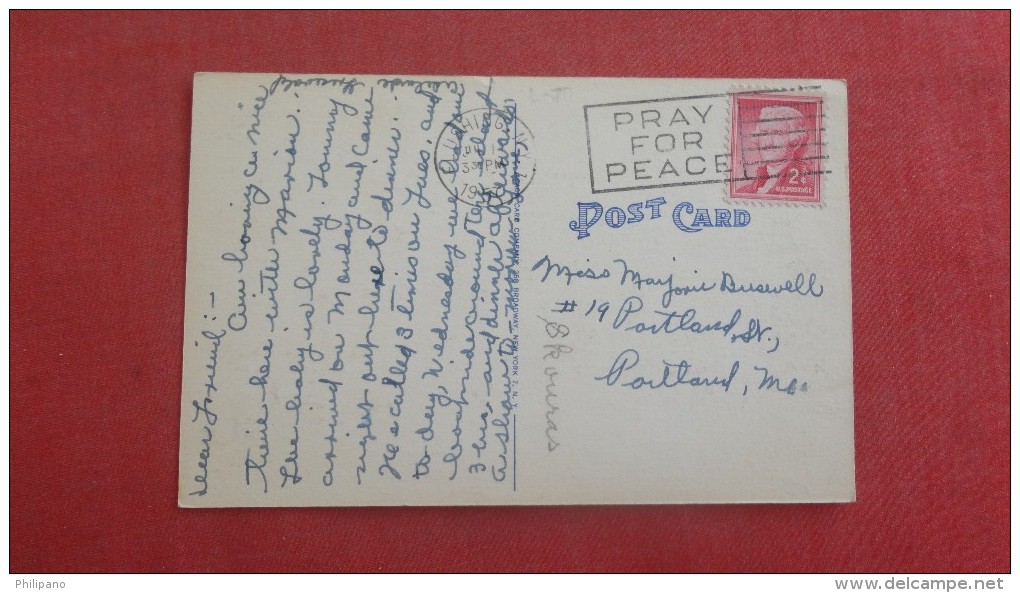 Dear Friend:-
Am having a nice
time here with Marion.
The baby is lovely. Tommy
arrived on Monday and came
right out here to dinner.
He called 3 times on Tues, and
to day, Wednesday we had one
boat ride around the Island
3 hrs, and dinner afterwards
PRAY
FOR
PEACE
2¢
U.S. POSTAGE
POST CARD
Miss Marjorie Buswell
#19 Portland, St.,
Portland, Me.
Skouras
Philipano
www.delcampe.net